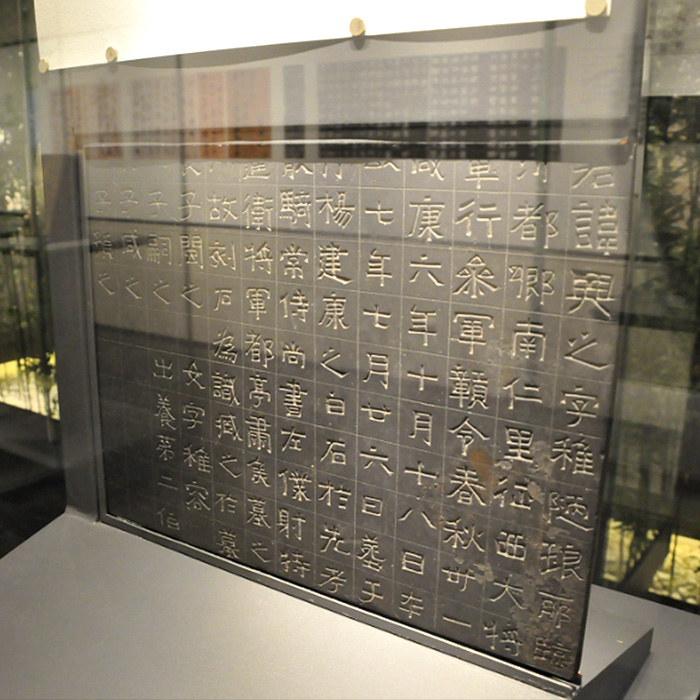 君諱興之字稚陋琅耶臨
都鄉南仁里征西大將
軍行參軍贛令春秋卅一
咸康六年十月十八日卒
七年七月廿六日葬于
楊建康之白石於先考
散騎常侍尚書左僕射特
進衛將軍都亭肅侯墓之
故刻石為識臧之於墓
長子閩之 女字稚容
子嗣之 出養第二伯
子咸之
子預之